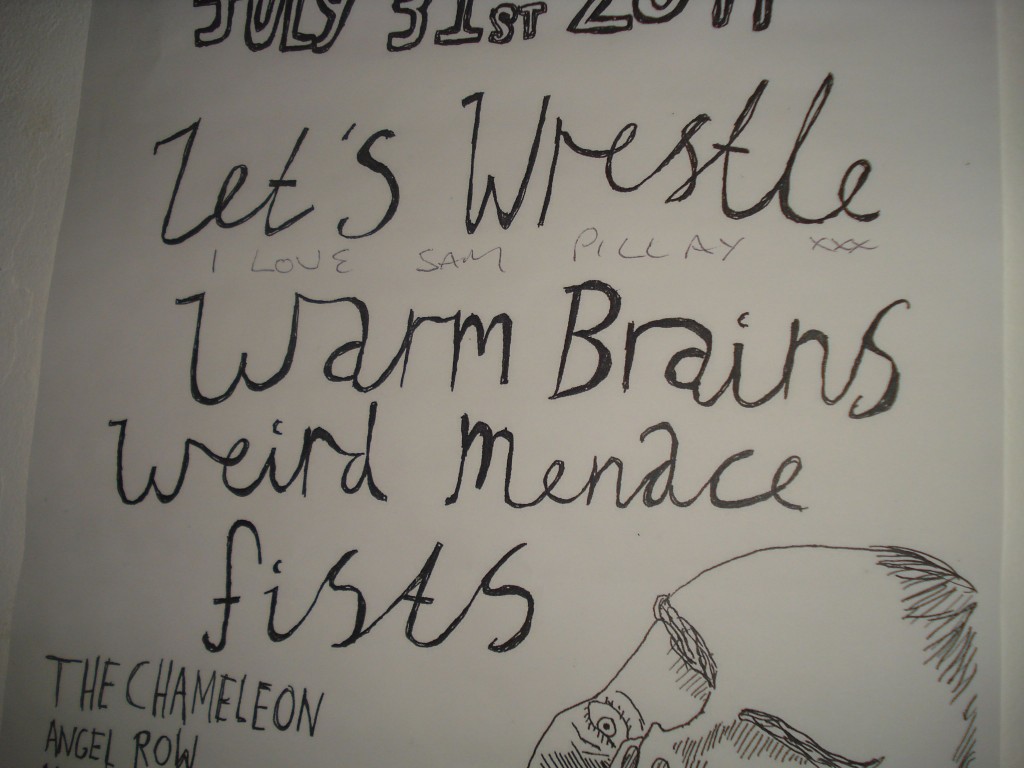 JULY 31ST 2011
Let's Wrestle
I LOVE SAM PILLAY xxx
Warm Brains
Weird Menace
fists
THE CHAMELEON
ANGEL ROW